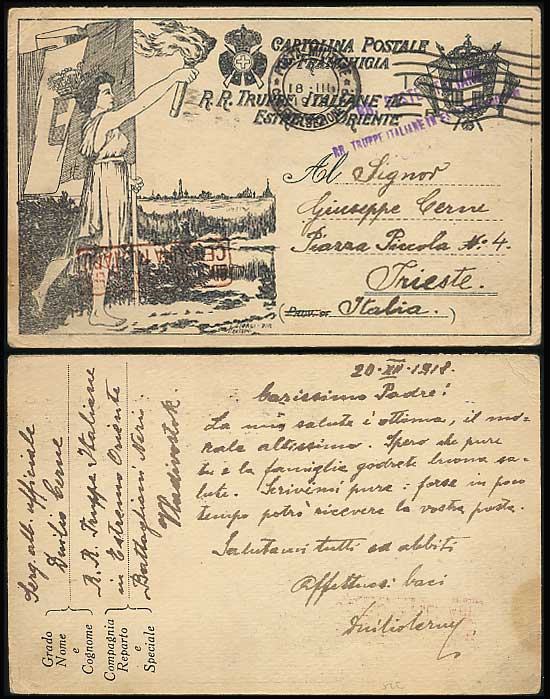 CARTOLINA POSTALE
IN FRANCHIGIA
R.R. TRUPPE ITALIANE IN
ESTREMO ORIENTE
18 - III
RR. TRUPPE ITALIANE IN
Al Signor
Giuseppe Cerne
Piazza Piccola No. 4.
Trieste.
(Prov. di Italia. )
CENSURA
20 - XII - 1918.
Carissimo Padre!
La mia salute è ottima, il mo-
rale altissimo. Spero che pure
tu e la famiglia godrete buona sa-
lute. Scrivimi pure: forse in poco
tempo potrò ricevere la vostra posta.
Salutami tutti ed abbiti
affettuosi baci
Duilio Cerne
Grado
Nome
e
Cognome
Compagnia
Reparto
e
Speciale
Serg. all. ufficiale
Duilio Cerne
R. R. Truppe Italiane
in Estremo Oriente
Battaglioni Neri.
Vladivostok.